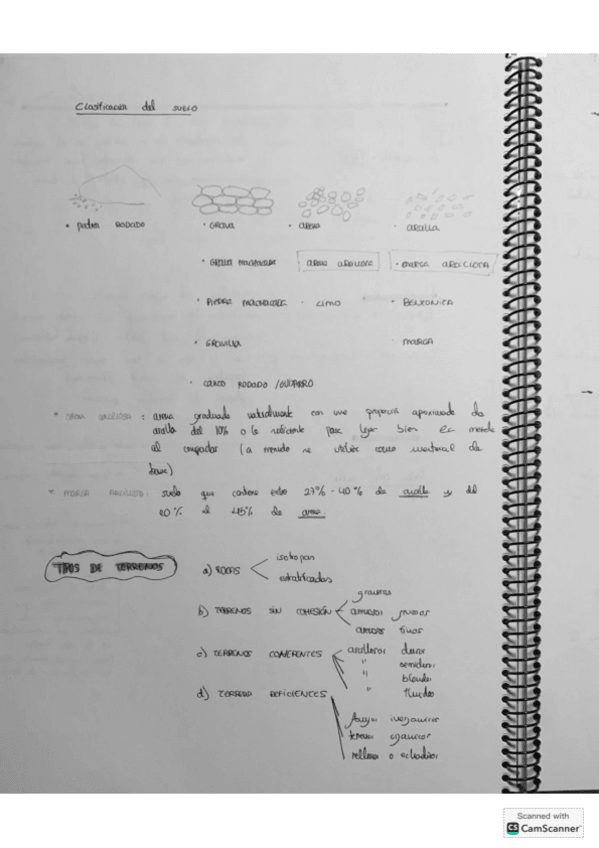 Clasificación del suelo
• piedra RODADO • GRAVA • ARENA • ARCILLA
• GRAVA MACHACADA ARENA ARCILLOSA • MARGA ARCILLOSA
• PIEDRA MACHACADA • LIMO • BENTONITA
• GRAVILLA MARGA
• CANTO RODADO /GUIJARRO
* ARENA ARCILLOSA : arena graduada naturalmente con una proporción aproximada de
arcilla del 10% o lo suficiente para ligar bien la mezcla
al compactar (a menudo se utiliza como material de
base)
* MARGA ARCILLOSA : suelo que contiene entre 27% - 40% de arcilla y del
20% al 45% de arena.
TIPOS DE TERRENOS
a) ROCAS isotropas
estratificadas
b) TERRENOS SIN COHESIÓN graveras
arenosos gruesos
arenosos finos
c) TERRENOS COHERENTES arcillosos duros
" semiduros
" blandos
" fluidos
d) TERRENOS DEFICIENTES
fangos inorgánicos
terrenos orgánicos
rellenos o echadizos
Scanned with
CS CamScanner